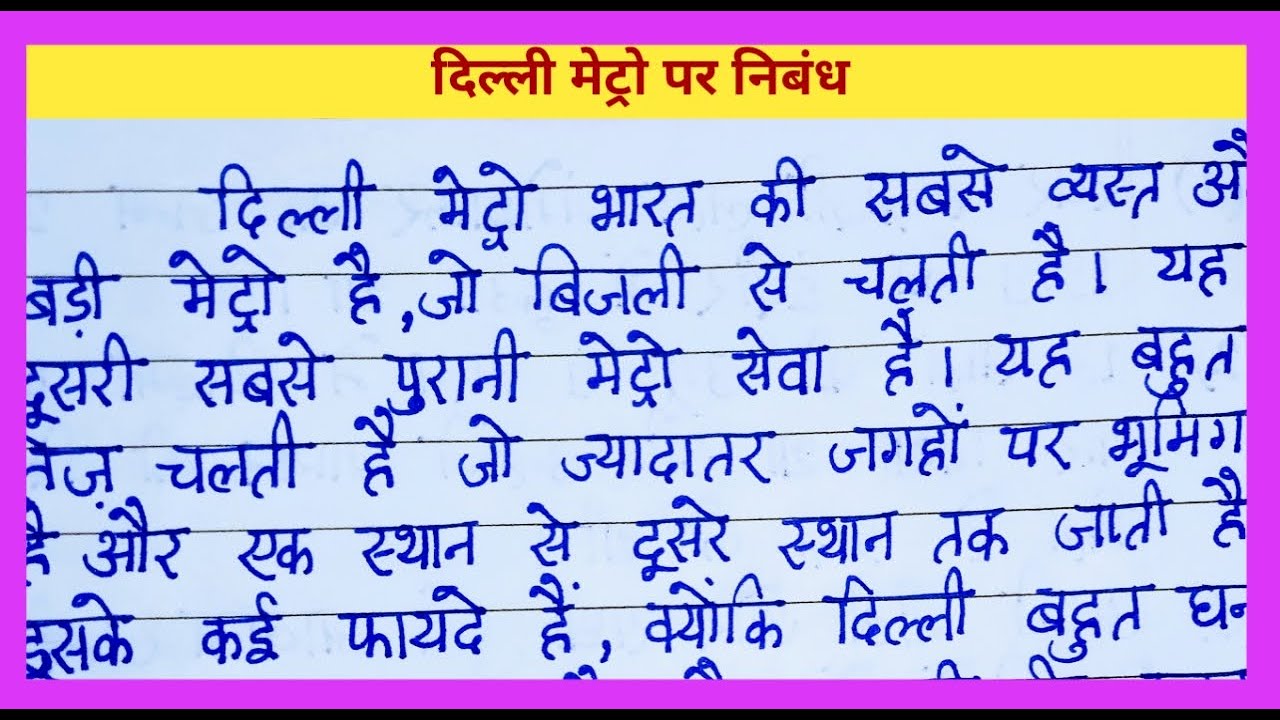 दिल्ली मेट्रो पर निबंध
दिल्ली मेट्रो भारत की सबसे व्यस्त औ
बड़ी मेट्रो है,जो बिजली से चलती है। यह
दूसरी सबसे पुरानी मेट्रो सेवा है। यह बहुत
तेज़ चलती है जो ज्यादातर जगहों पर भूमिग
है और एक स्थान से दूसरे स्थान तक जाती है
इसके कई फायदे हैं, क्योंकि दिल्ली बहुत घन